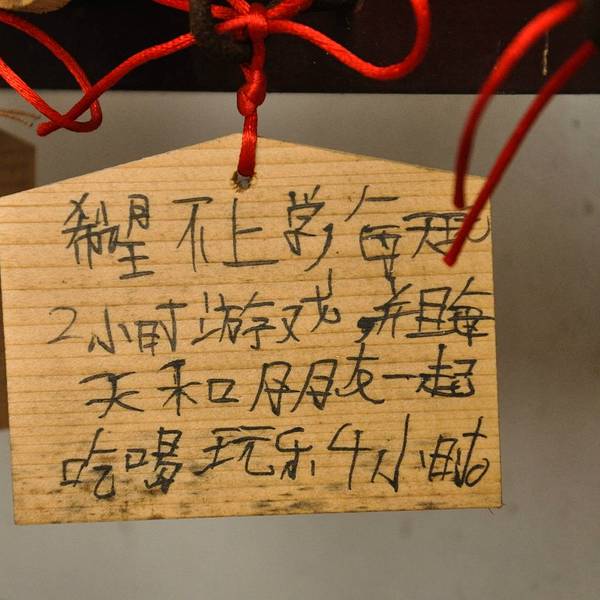 希望不上学,每天玩
2小时游戏,并且每
天和朋友一起
吃喝玩乐4小时